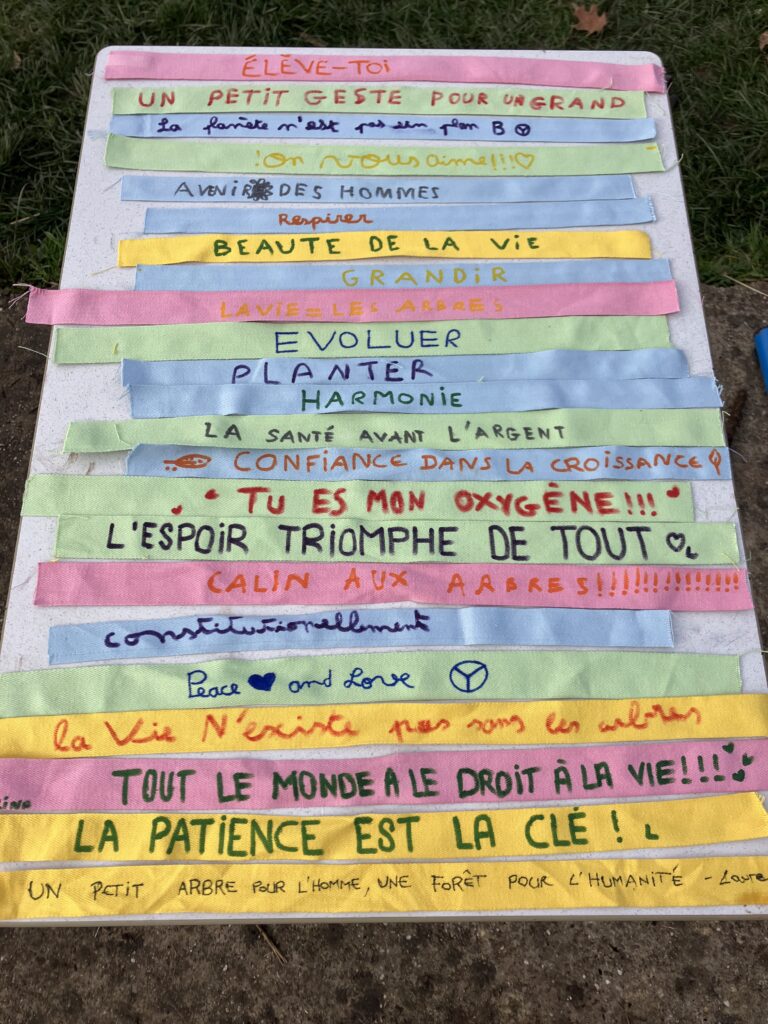 ÉLÈVE-TOI
UN PETIT GESTE POUR UN GRAND
La planète n'est pas un plan B
!On vous aime!!!
AVENIR DES HOMMES
Respirer
BEAUTE DE LA VIE
GRANDIR
LA VIE = LES ARBRES
EVOLUER
PLANTER
HARMONIE
LA SANTÉ AVANT L'ARGENT
CONFIANCE DANS LA CROISSANCE
TU ES MON OXYGÈNE!!!
L'ESPOIR TRIOMPHE DE TOUT L
CALIN AUX ARBRES!!!!!!!!!!!!!!!
constitutionellement
Peace and Love
la Vie N'existe pas sans les arbres
TOUT LE MONDE A LE DROIT À LA VIE!!!
LA PATIENCE EST LA CLÉ ! L
UN PETIT ARBRE POUR L'HOMME, UNE FORÊT POUR L'HUMANITÉ - Laure